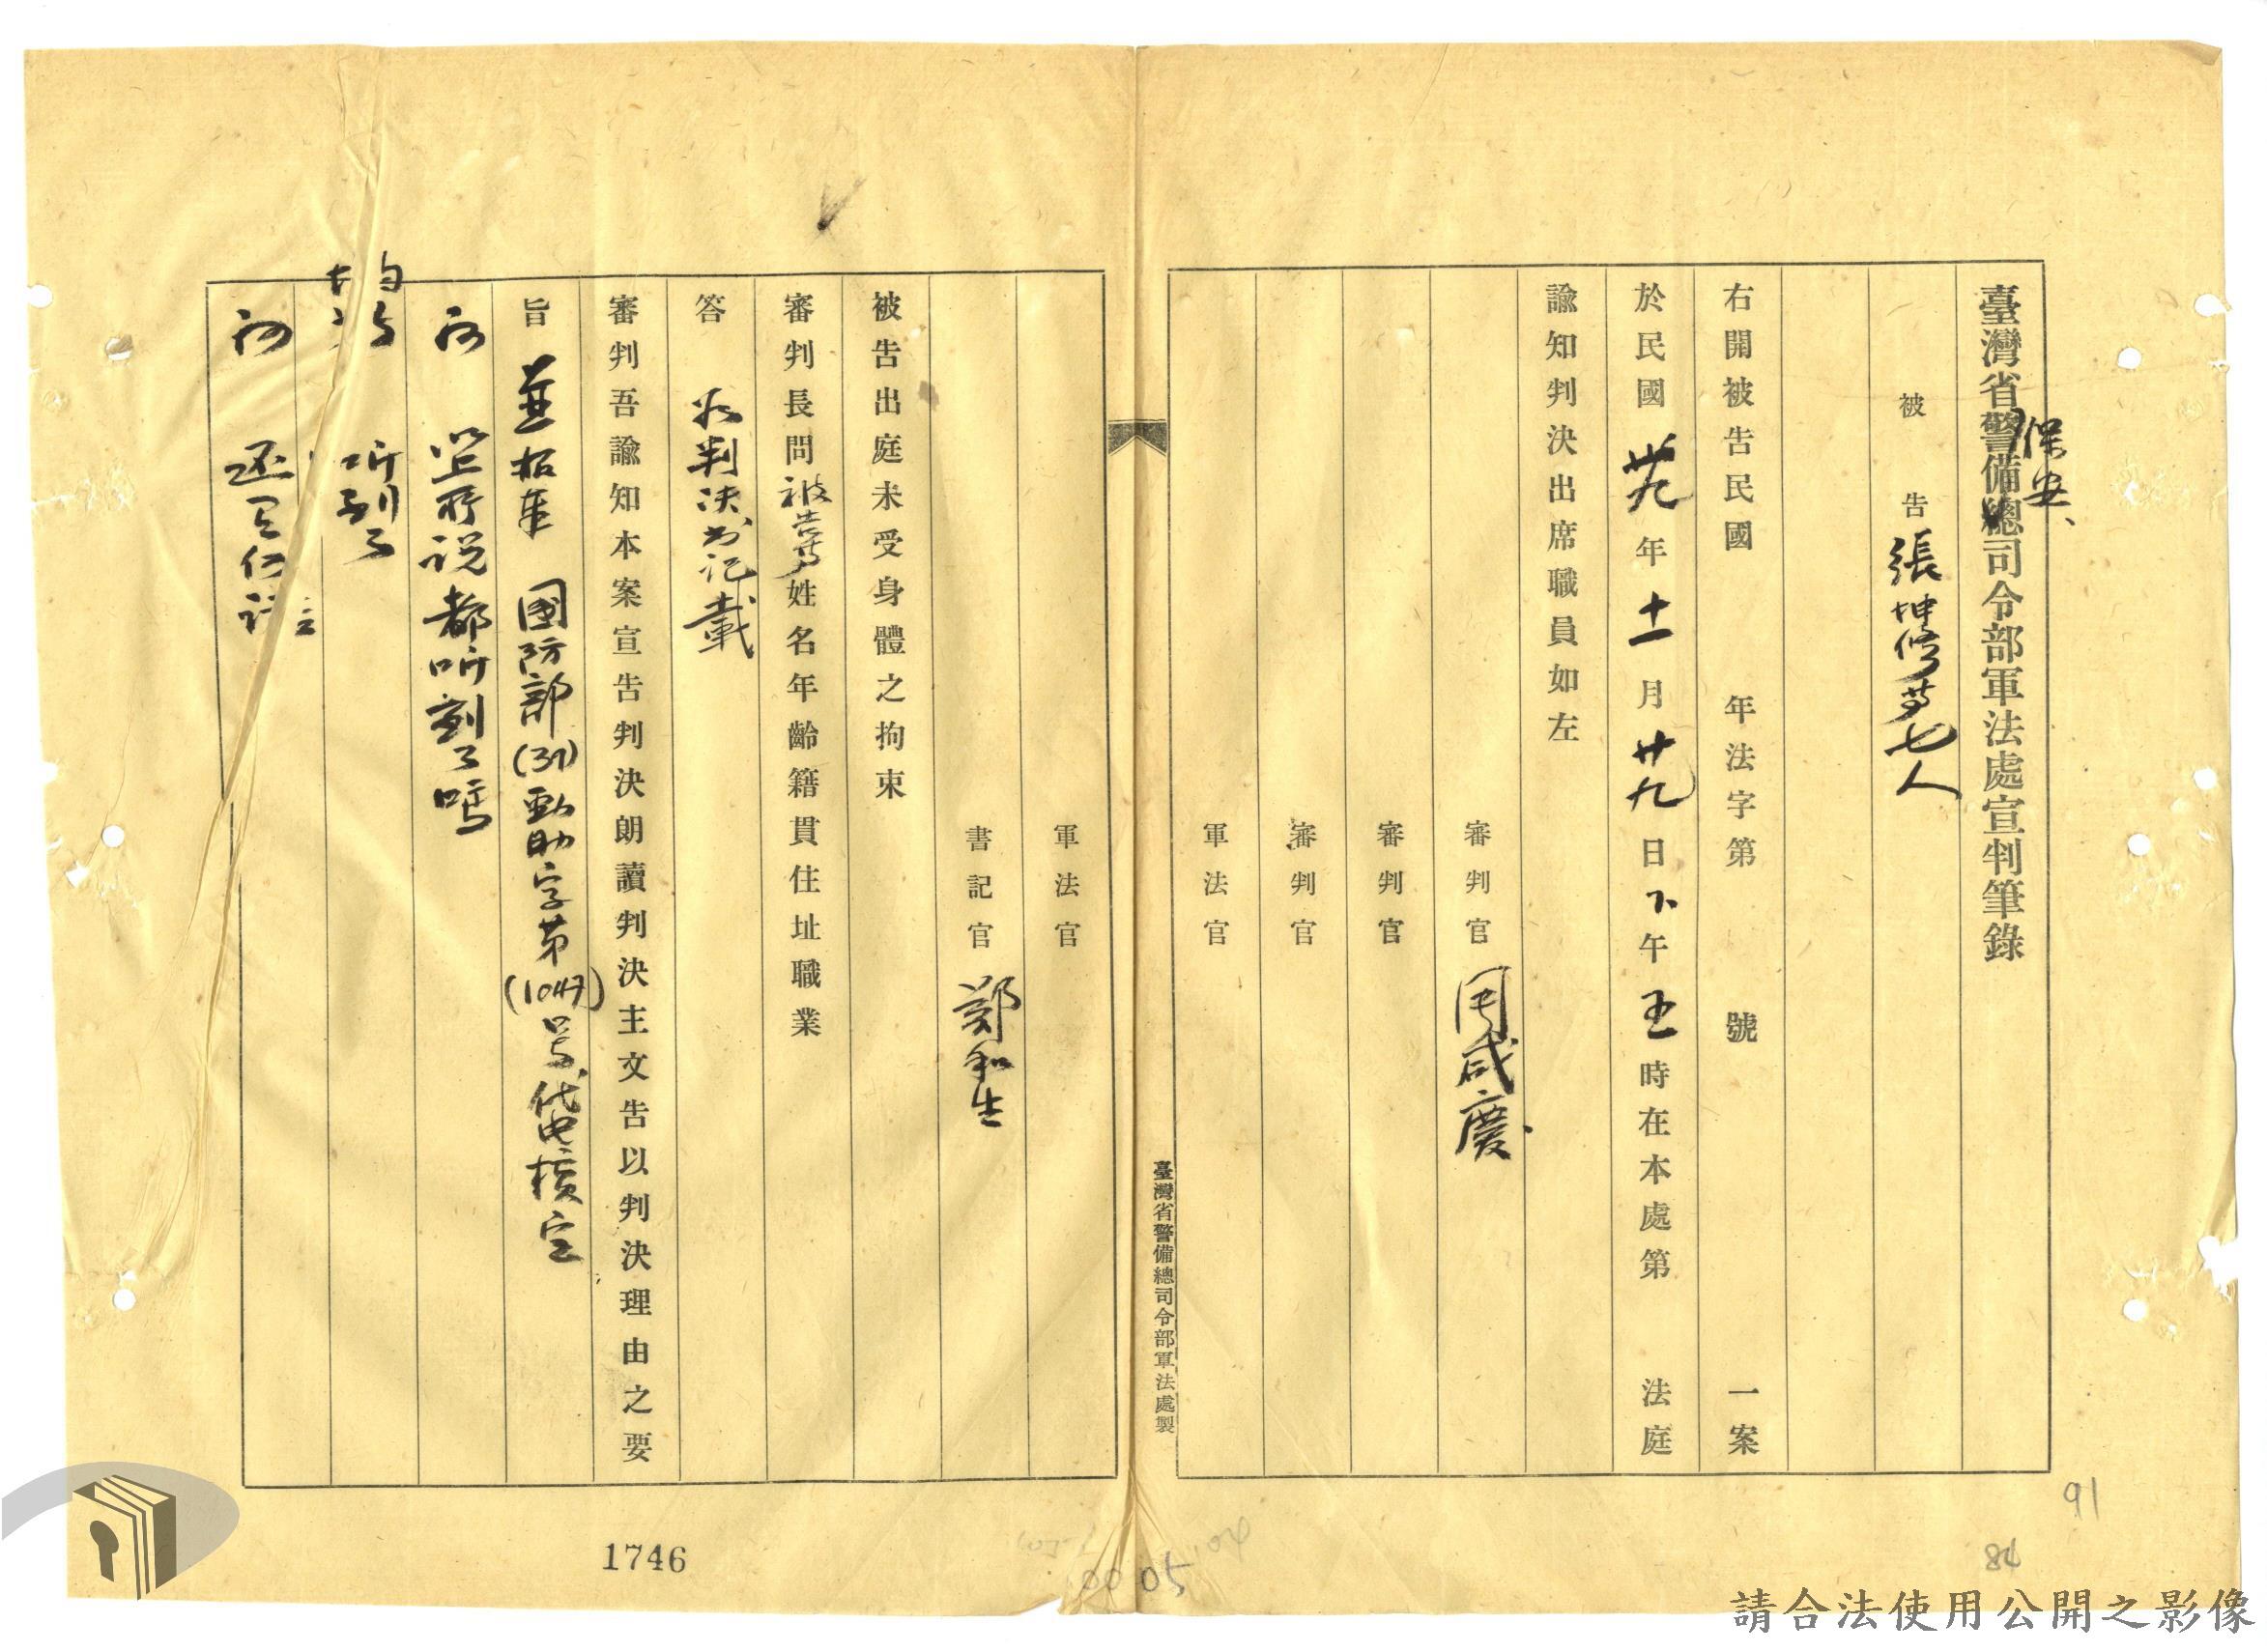 臺灣省警備總司令部軍法處宣判筆錄
保安
被告 張坤修等七人
右開被告民國 年法字第 號 一案
於民國卅九年十一月廿九日下午五時在本處第 法庭
諭知判決出席職員如左
審判官 周咸慶
審判官
審判官
軍法官
臺灣省警備總司令部軍法處製
軍法官
書記官 鄭和生
被告出庭未受身體之拘束
審判長問被告等姓名年齡籍貫住址職業
答 如判決書記載
審判吾諭知本案宣告判決朗讀判決主文告以判決理由之要
旨 並指業 國防部(39)勁助字第(1047)號代電核定
問 以上所說都听到了嗎
均答 听到了
問
1746
0005
91
84
請合法使用公開之影像